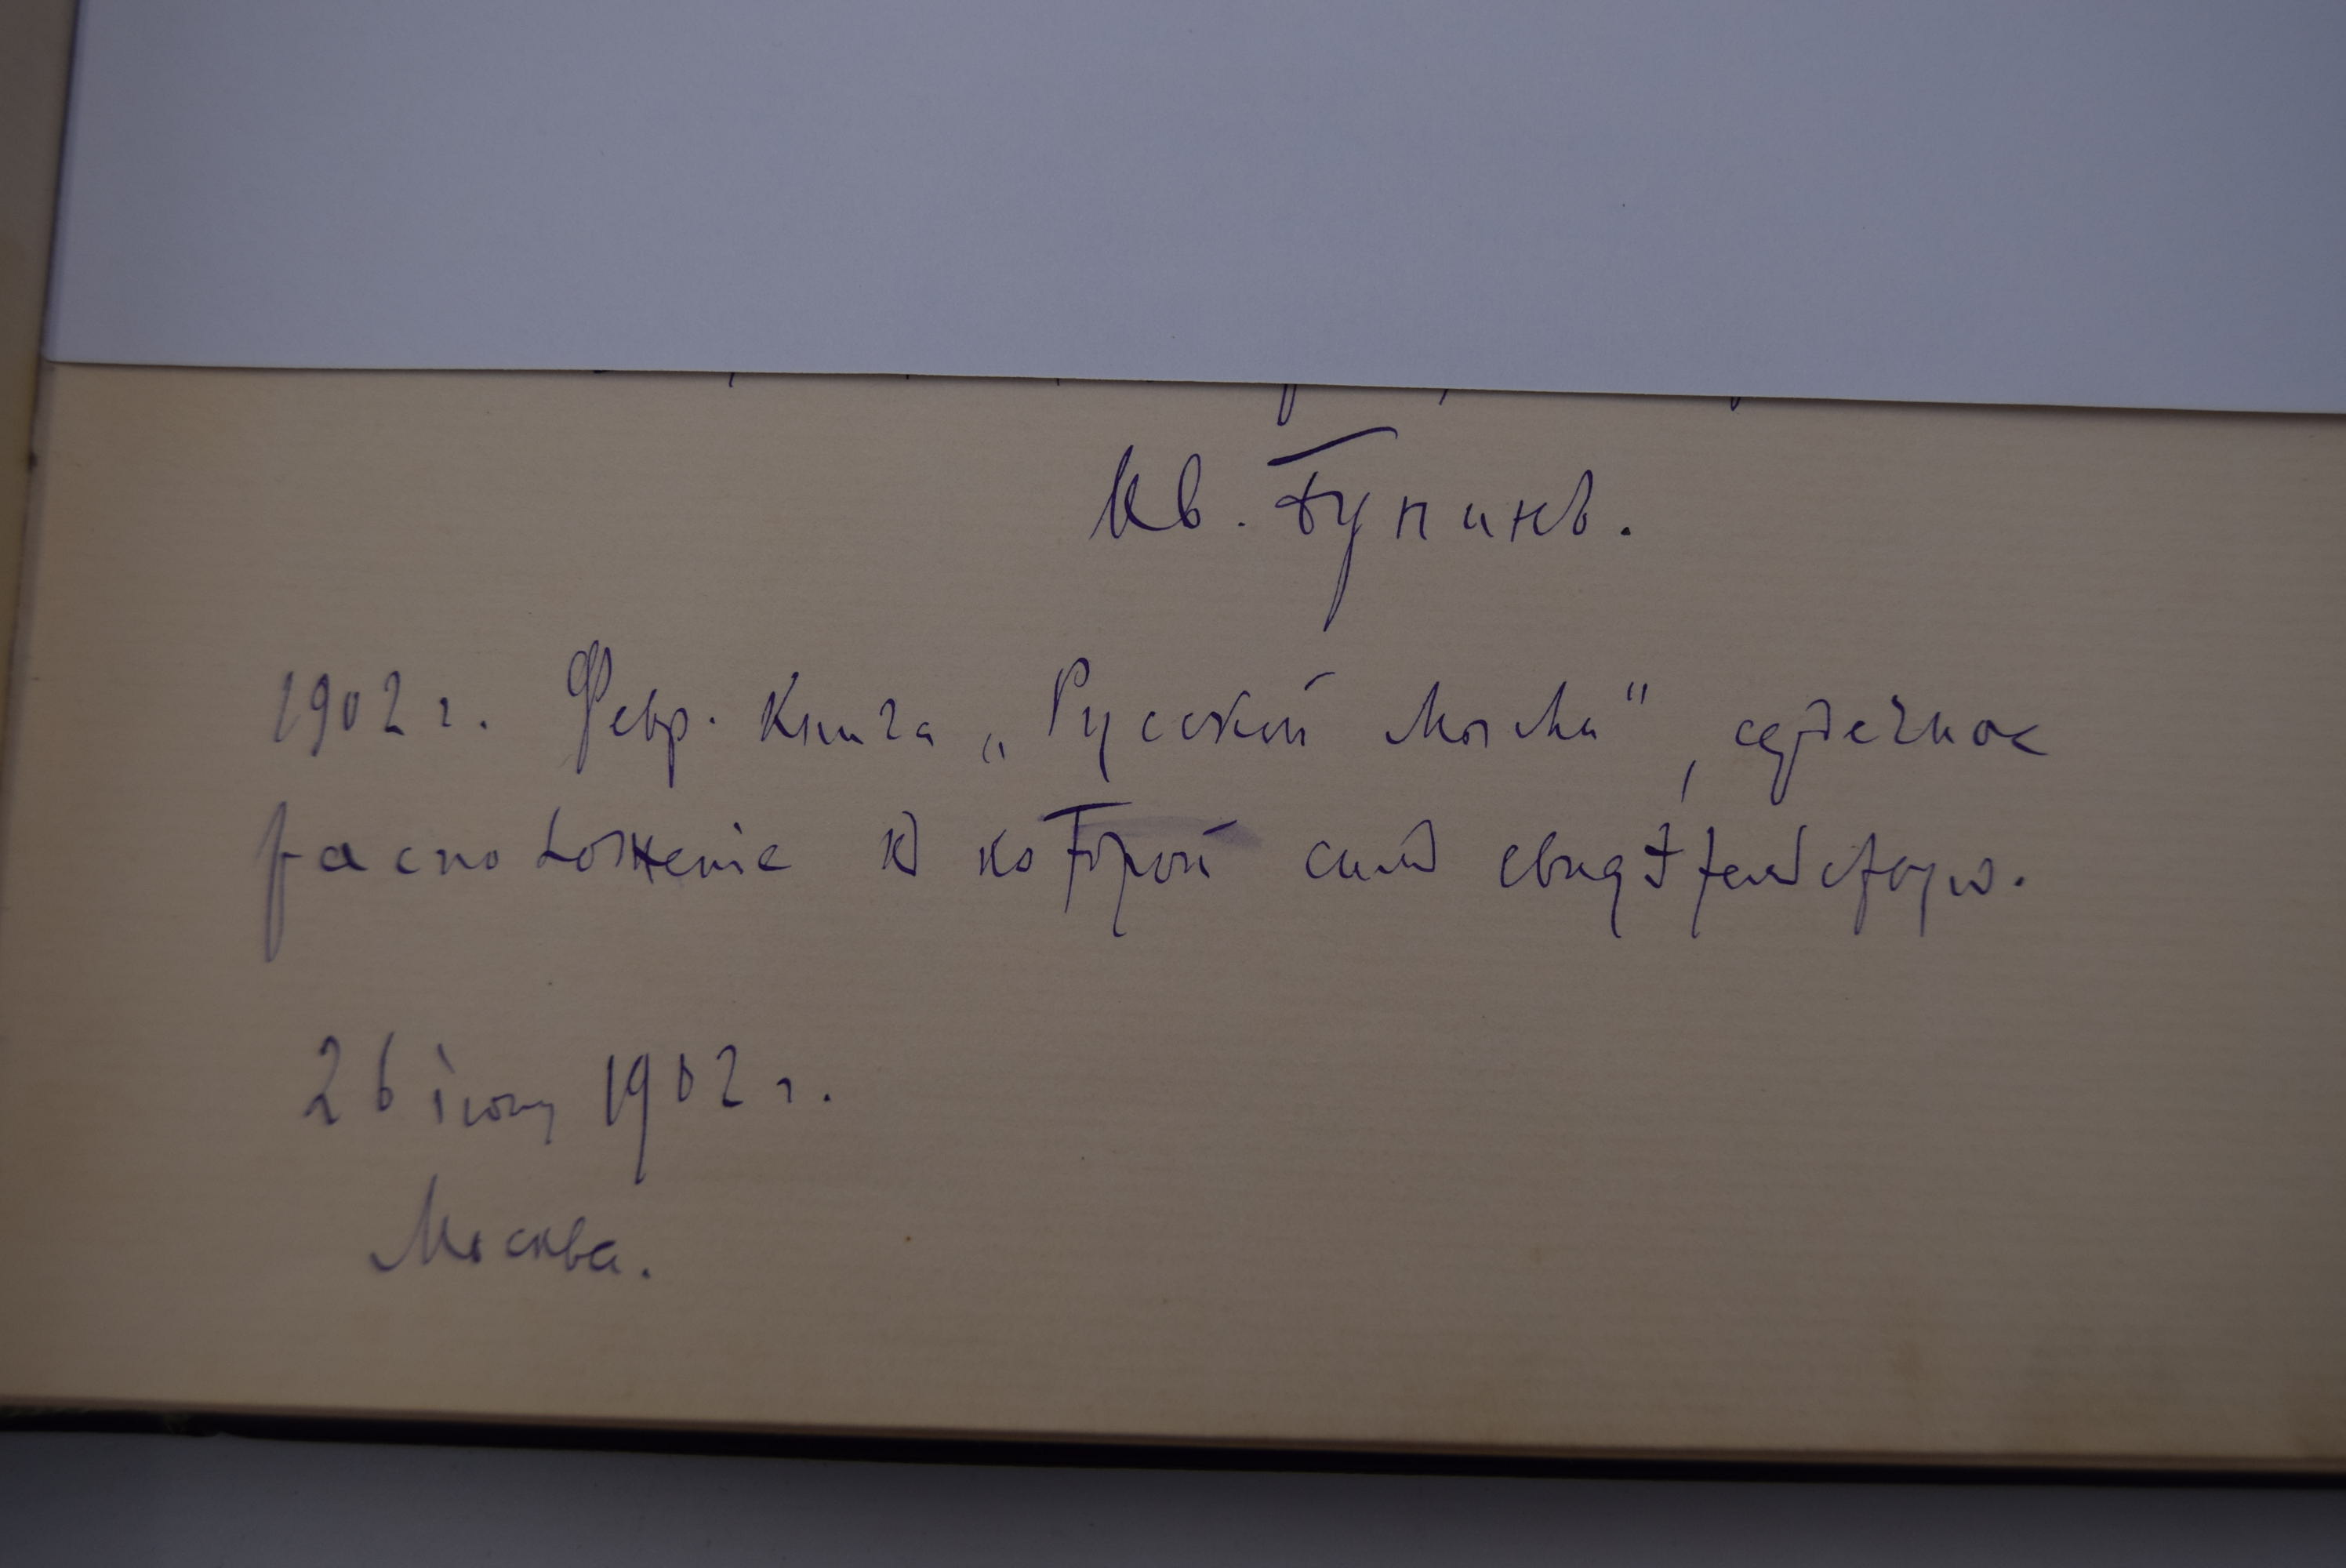 Ив. Бунинъ.
1902 г. Февр. книга „Русской Мысли“, сердечное
расположеніе къ которой симъ свидѣтельствую.
26 іюня 1902 г.
Москва.